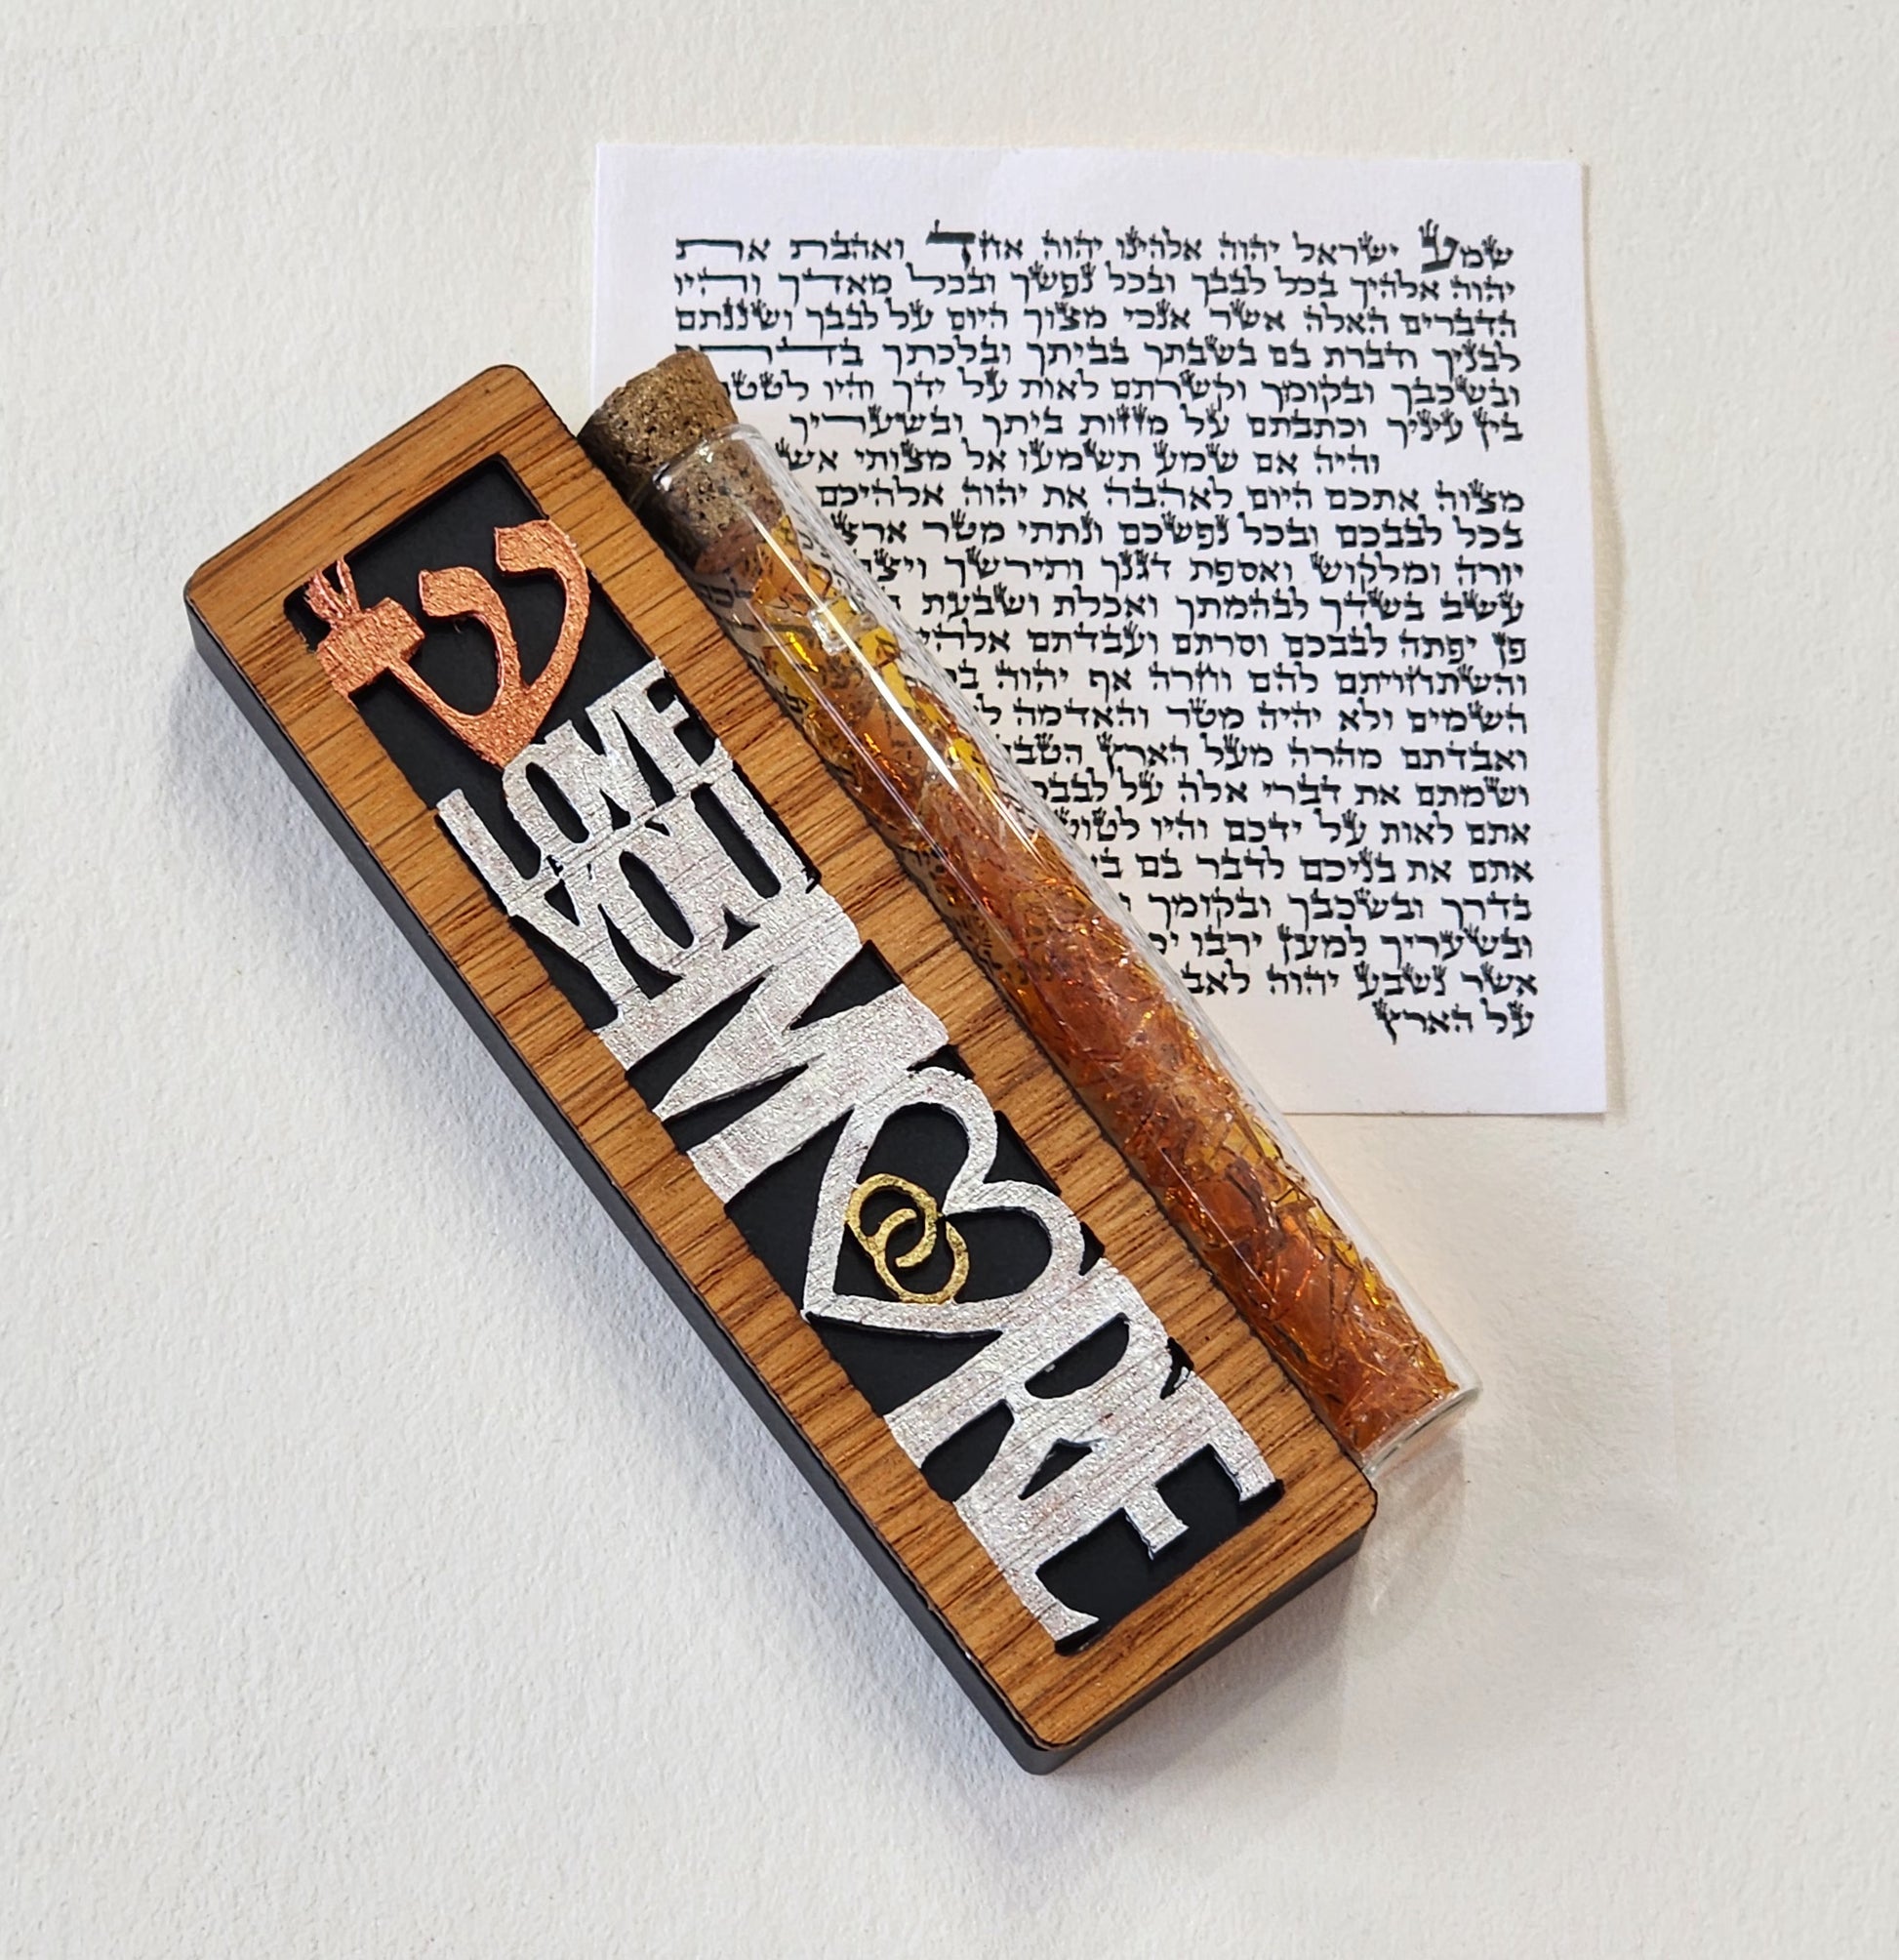 שמע ישראל יהוה אלהינו יהוה אחד ואהבת את
יהוה אלהיך בכל לבבך ובכל נפשך ובכל מאדך והיו
הדברים האלה אשר אנכי מצוך היום על לבבך ושננתם
לבניך ודברת בם בשבתך בביתך ובלכתך בדרך
ובשכבך ובקומך וקשרתם לאות על ידך והיו
בין עיניך וכתבתם על מזזות ביתך ובשעריך
והיה אם שמע תשמעו אל מצותי
מצוה אתכם היום לאהבה את יהוה אלהיכם
בכל לבבכם ובכל נפשכם ונתתי מטר
יורה ומלקוש ואספת דגנך ותירשך
עשב בשדך לבהמתך ואכלת ושבעת
פן יפתה לבבכם וסרתם ועבדתם
והשתחויתם להם וחרה אף יהוה
השמים ולא יהיה מטר והאדמה
ואבדתם מהרה מעל הארץ
ושמתם את דברי אלה על
אתם לאות על ידכם והיו
אתם את בניכם לדבר בם
בדרך ובשכבך ובקומך
ובשעריך למען ירבו
אשר נשבע יהוה
על הארץ
ש
LOVE
YOU
MORE